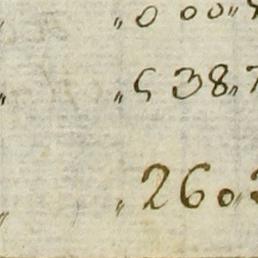 〃0 00〃
〃 〃5 38〃7
〃 〃260〃